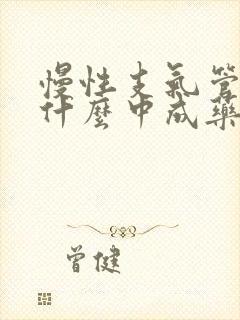 慢性支氣管
什麼中成藥
曾健